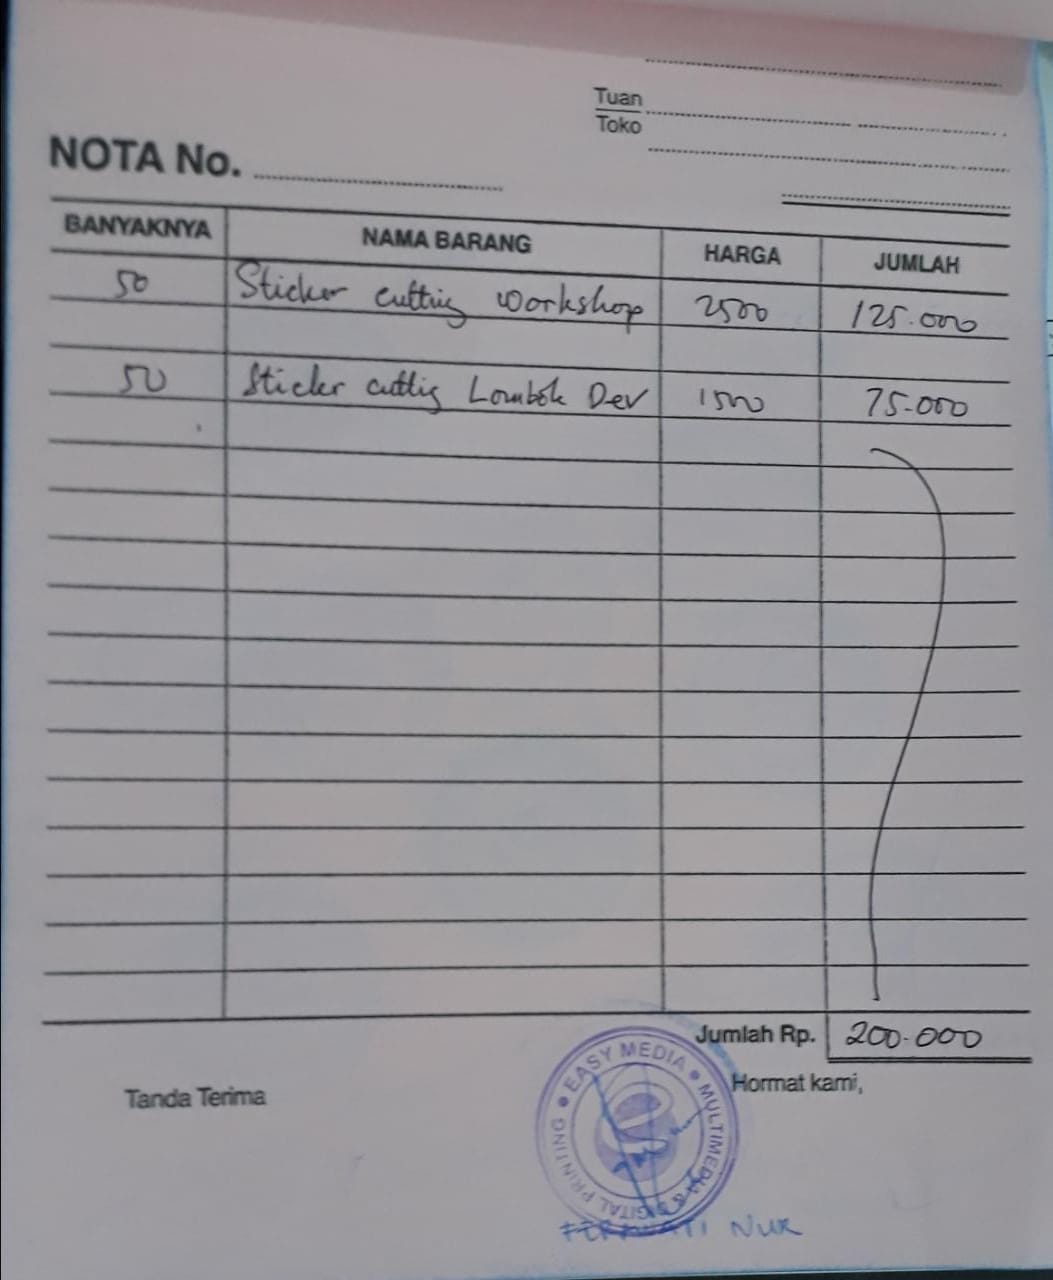 Tuan
Toko
NOTA No.
BANYAKNYA NAMA BARANG HARGA JUMLAH
50 Sticker cutting workshop 2500 125.000
50 Sticker cuttig Lombok Dev 1500 75.000
Jumlah Rp. 200.000
Tanda Terima Hormat kami,
EASY MEDIA • MULTIMEDIA & DIGITAL PRINTING
NUR